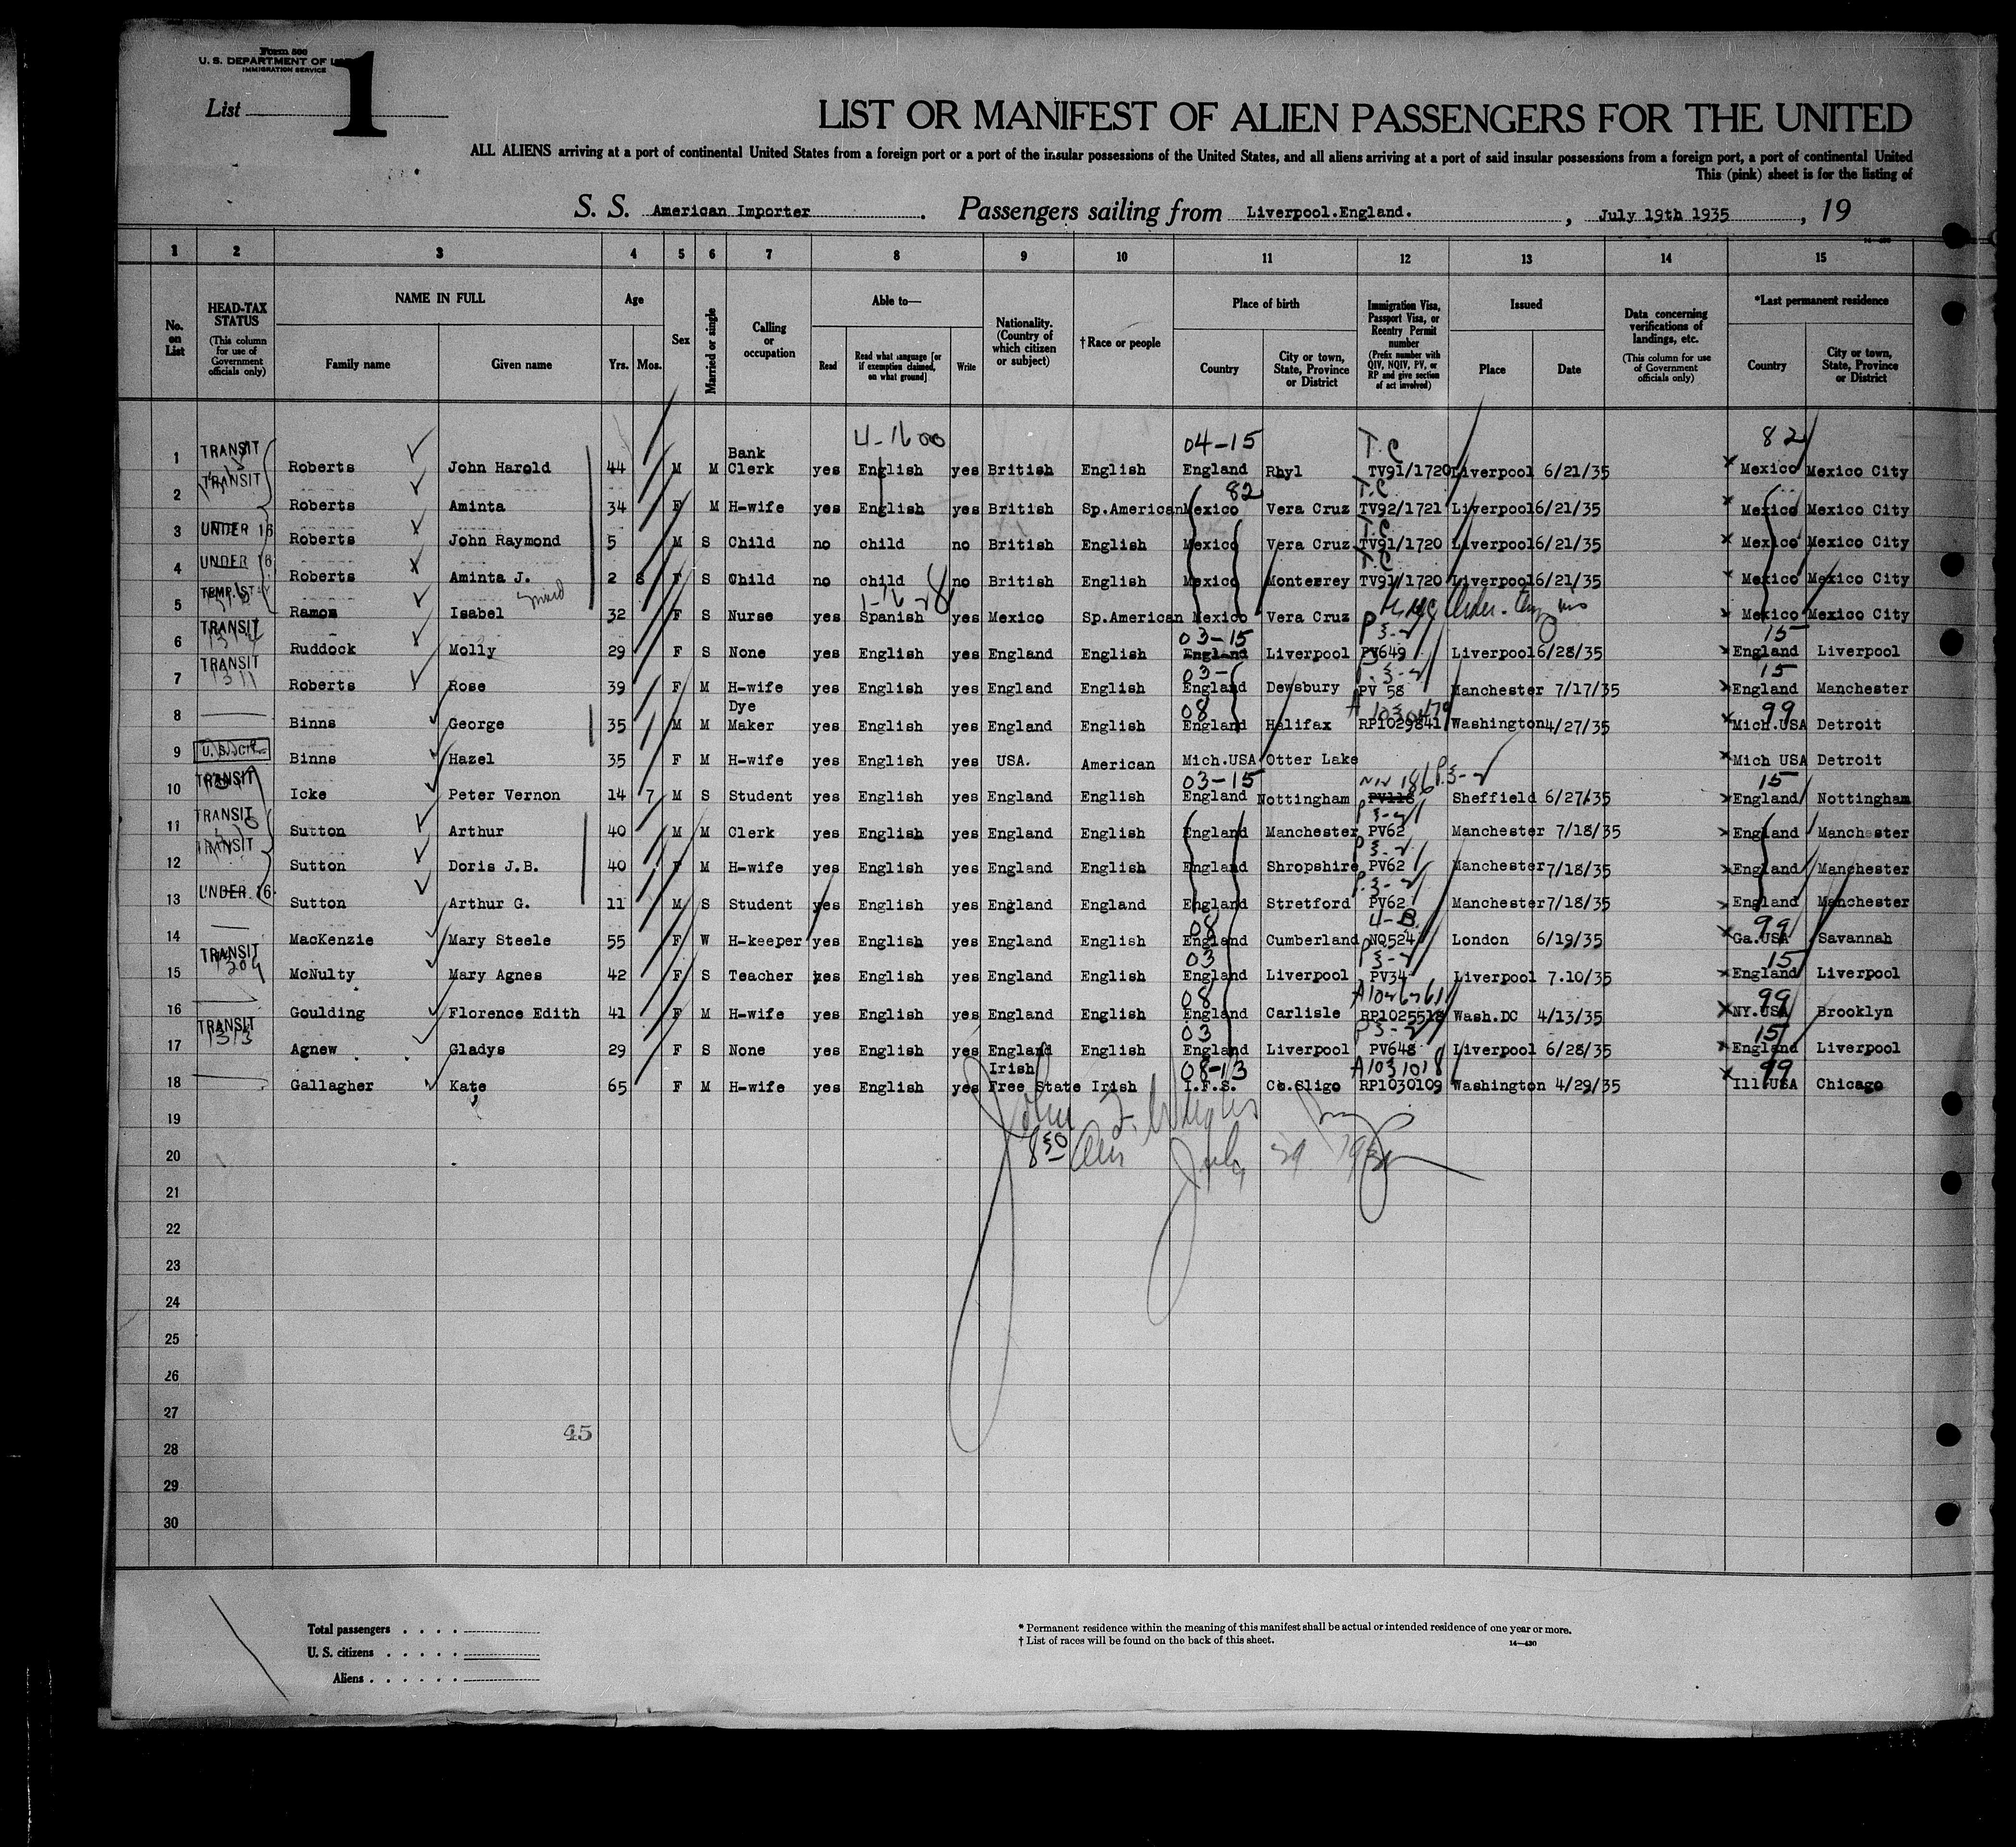 Form 500
U. S. DEPARTMENT OF
IMMIGRATION SERVICE
List 1
LIST OR MANIFEST OF ALIEN PASSENGERS FOR THE UNITED
ALL ALIENS arriving at a port of continental United States from a foreign port or a port of the insular possessions of the United States, and all aliens arriving at a port of said insular possessions from a foreign port, a port of continental United
This (pink) sheet is for the listing of
S. S. American Importer . Passengers sailing from Liverpool.England. , July 19th 1935 , 19
1 2 3 4 5 6 7 8 9 10 11 12 13 14 15
No. on List
HEAD-TAX STATUS (This column for use of Government officials only)
NAME IN FULL
Family name Given name
Age
Yrs. Mos.
Sex
Married or single
Calling or occupation
Able to—
Read
Read what language [or if exemption claimed, on what ground]
Write
Nationality. (Country of which citizen or subject)
† Race or people
Place of birth
Country
City or town, State, Province or District
Immigration Visa, Passport Visa, or Reentry Permit number (Prefix number with QIV, NQIV, PV, or RP and give section of act involved)
Issued
Place Date
Data concerning verifications of landings, etc. (This column for use of Government officials only)
*Last permanent residence
Country
City or town, State, Province or District
4-1600 04-15 T.C 82
1 TRANSIT Roberts John Harold 44 M M Bank Clerk yes English yes British English England Rhyl TV91/1720 Liverpool 6/21/35 Mexico Mexico City
82 T.C
2 TRANSIT Roberts Aminta 34 F M H-wife yes English yes British Sp.American Mexico Vera Cruz TV92/1721 Liverpool 6/21/35 Mexico Mexico City
T.C
3 UNDER 16 Roberts John Raymond 5 M S Child no child no British English Mexico Vera Cruz TV91/1720 Liverpool 6/21/35 Mexico Mexico City
T.C
4 UNDER 16 Roberts Aminta J. 2 8 F S Child no child no British English Mexico Monterrey TV91/1720 Liverpool 6/21/35 Mexico Mexico City
maid
5 TEMP. STAY Ramos Isabel 32 F S Nurse yes Spanish yes Mexico Sp.American Mexico Vera Cruz Mexico Mexico City
03-15 P3-2 15
6 TRANSIT Ruddock Molly 29 F S None yes English yes England English England Liverpool PV649 Liverpool 6/28/35 England Liverpool
03- 15
7 TRANSIT 1311 Roberts Rose 39 F M H-wife yes English yes England English England Dewsbury PV 58 Manchester 7/17/35 England Manchester
08 99
8 Binns George 35 M M Dye Maker yes English yes England English England Halifax RP1029841 Washington 4/27/35 Mich.USA Detroit
9 U.S. CIT Binns Hazel 35 F M H-wife yes English yes USA. American Mich.USA Otter Lake Mich USA Detroit
03-15 P.3-2 15
10 TRANSIT Icke Peter Vernon 14 7 M S Student yes English yes England English England Nottingham PV118 Sheffield 6/27/35 England Nottingham
11 TRANSIT Sutton Arthur 40 M M Clerk yes English yes England English England Manchester PV62 Manchester 7/18/35 England Manchester
P3-2
12 TRANSIT Sutton Doris J.B. 40 F M H-wife yes English yes England English England Shropshire PV62 Manchester 7/18/35 England Manchester
P.3-2
13 UNDER 16 Sutton Arthur G. 11 M S Student yes English yes England England England Stretford PV62 Manchester 7/18/35 England Manchester
08 4-B 99
14 MacKenzie Mary Steele 55 F W H-keeper yes English yes England English England Cumberland NQ524 London 6/19/35 Ga.USA Savannah
03 P3-2 15
15 TRANSIT 1309 McNulty Mary Agnes 42 F S Teacher yes English yes England English England Liverpool PV34 Liverpool 7.10/35 England Liverpool
08 99
16 Goulding Florence Edith 41 F M H-wife yes English yes England English England Carlisle RP1025518 Wash.DC 4/13/35 NY.USA Brooklyn
03 P3-2 15
17 TRANSIT 1313 Agnew Gladys 29 F S None yes English yes England English England Liverpool PV648 Liverpool 6/28/35 England Liverpool
08-13 A1031018 99
18 Gallagher Kate 65 F M H-wife yes English yes Irish Free State Irish I.F.S. Co.Sligo RP1030109 Washington 4/29/35 Ill.USA Chicago
19 John
20 850 July 29 1935
21
22
23
24
25
26
27
45
28
29
30
Total passengers . . . .
U. S. citizens . . . . .
Aliens . . . . . .
* Permanent residence within the meaning of this manifest shall be actual or intended residence of one year or more.
† List of races will be found on the back of this sheet. 14—430